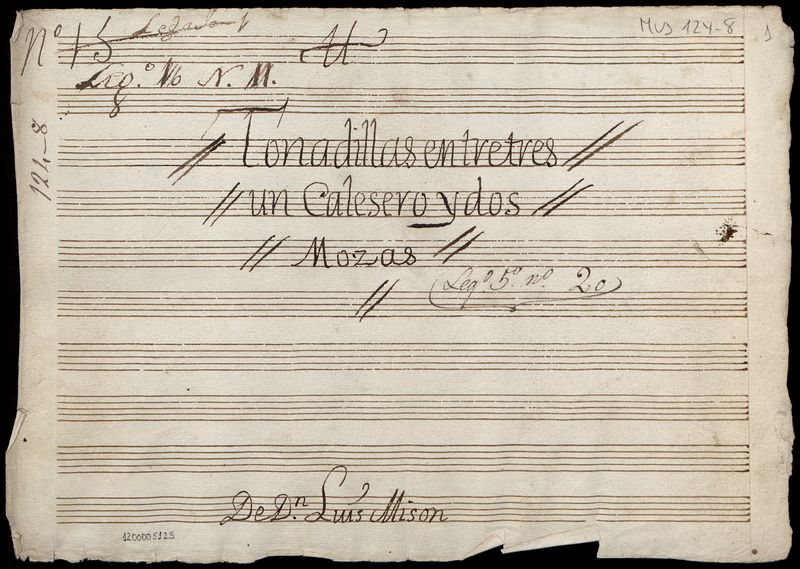 Nº 15
MUS 124-8
1
Leg.º 16 N. 11.
8
124-8
// Tonadillas entre tres //
// un Calesero y dos //
// Mozas //
//
(Legº 5º nº 20)
De Dn. Luis Mison
1200005128